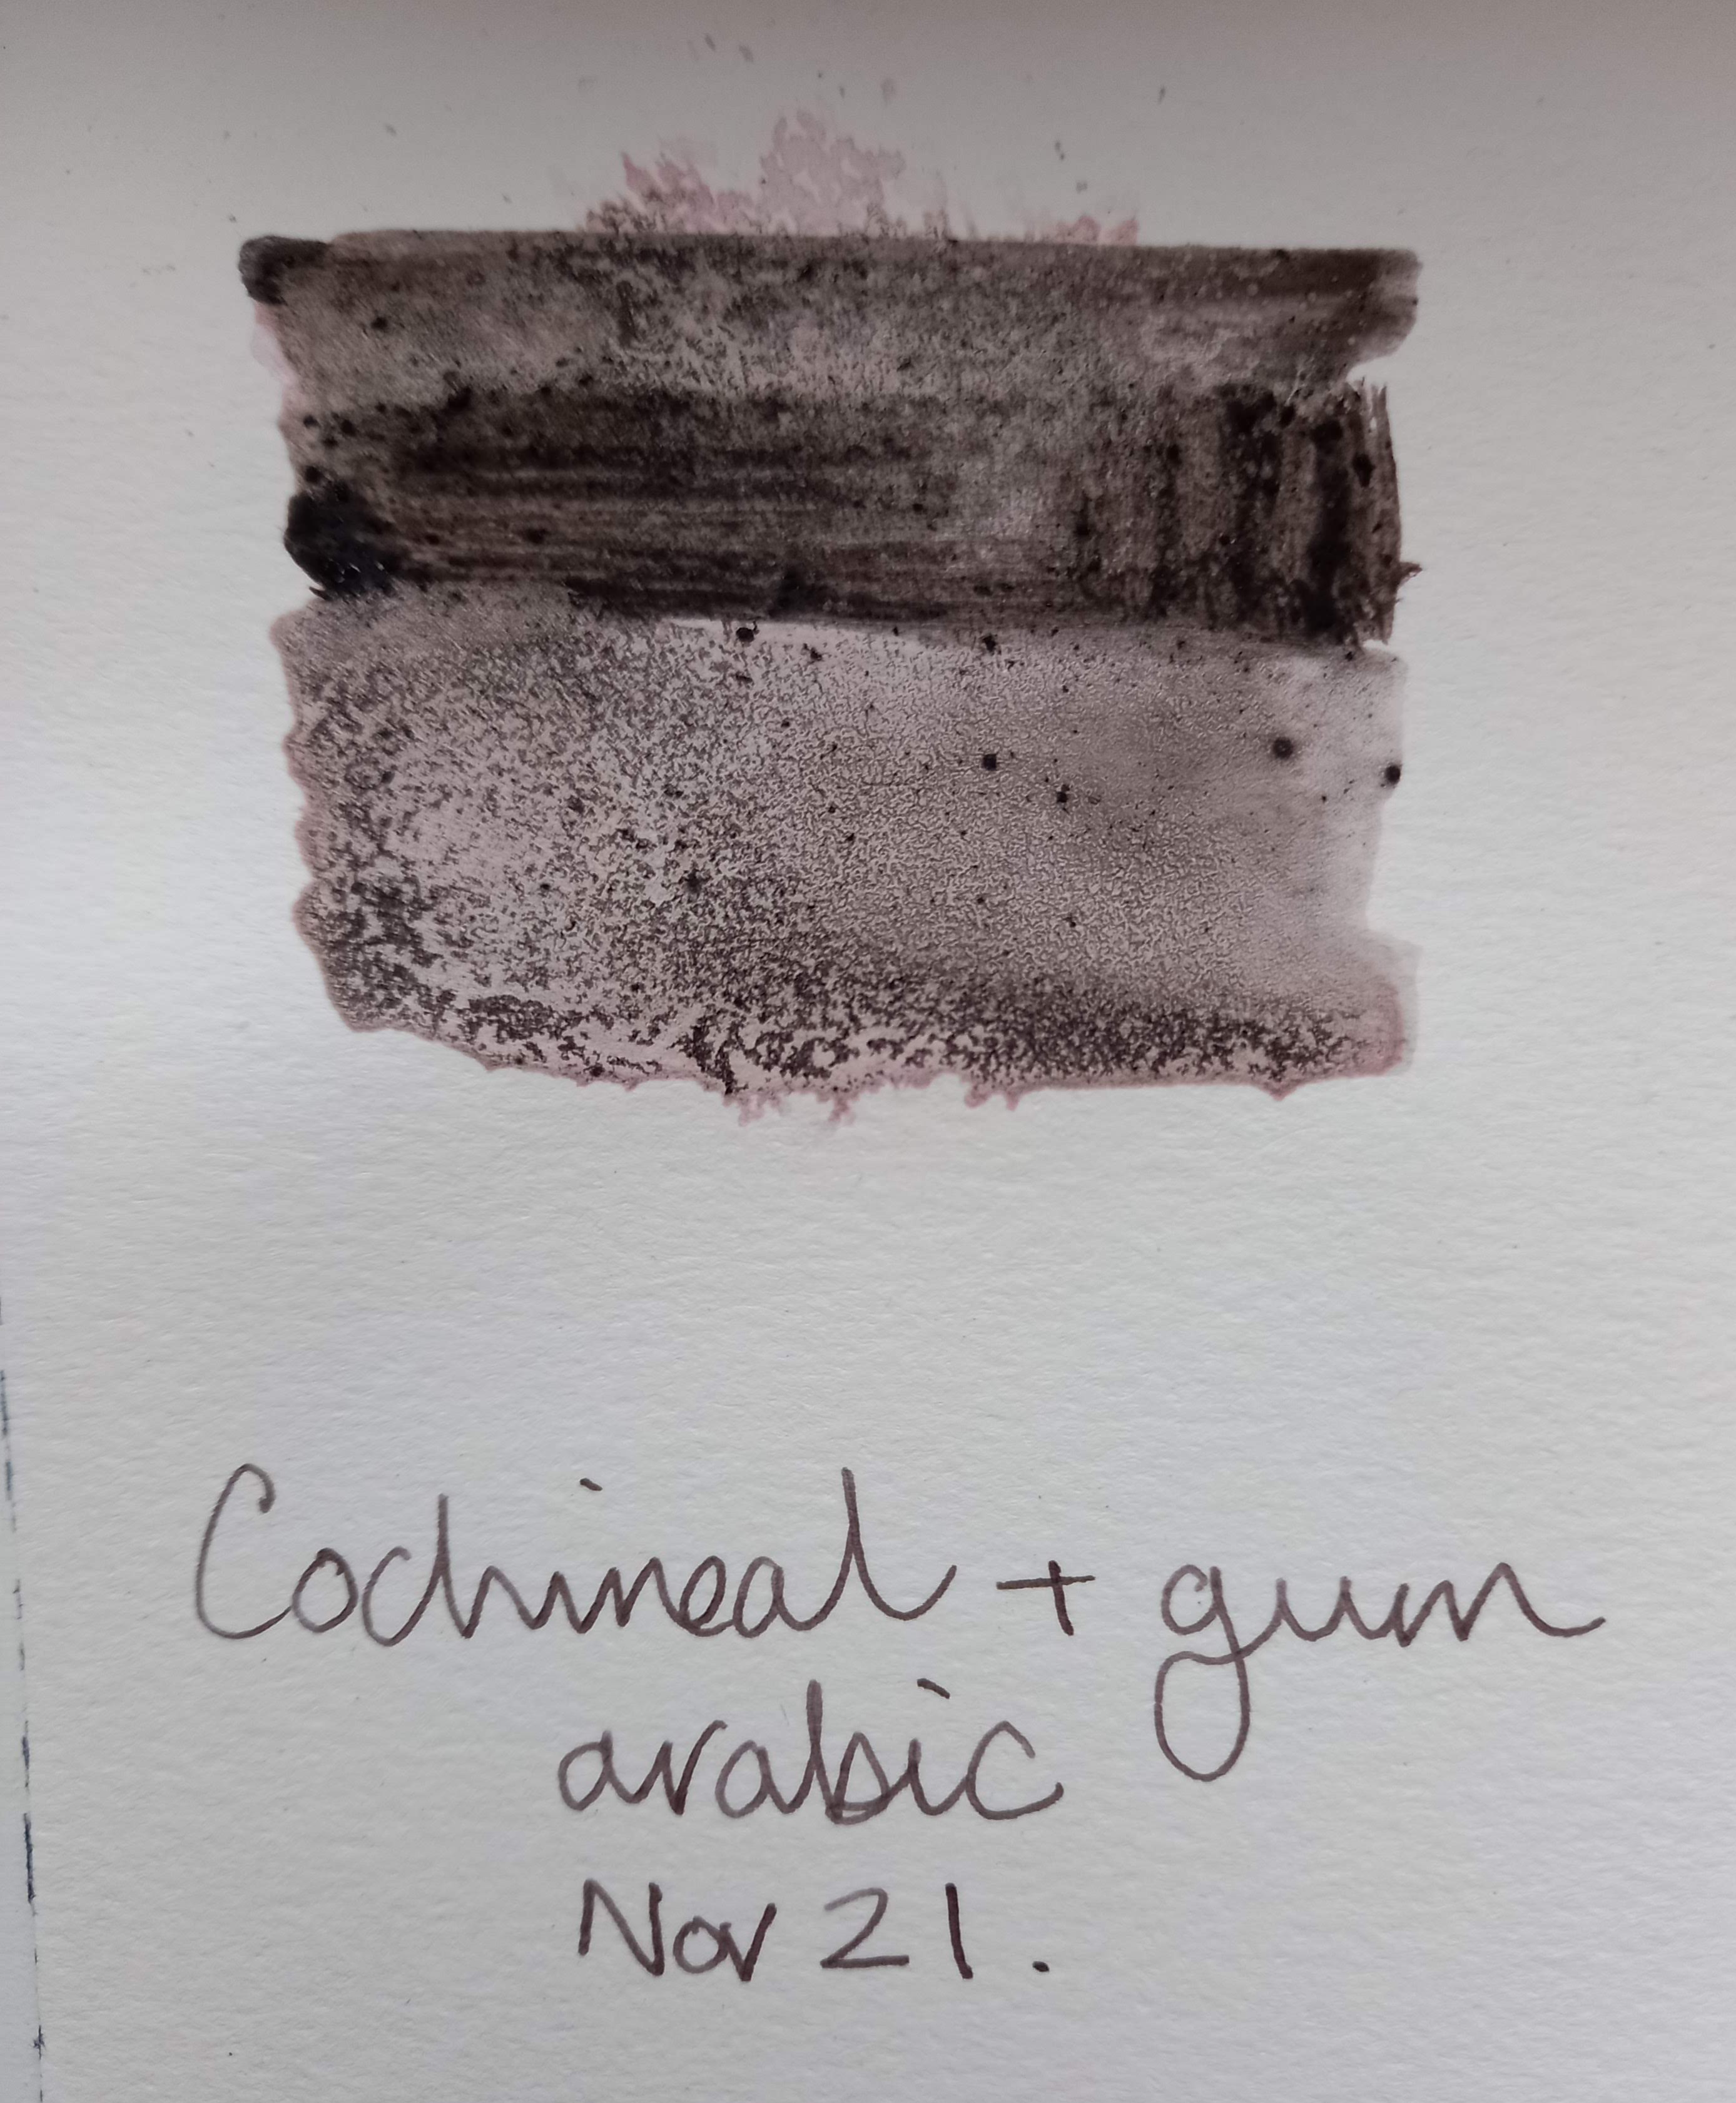 Cochineal + gum
arabic
Nov 21.